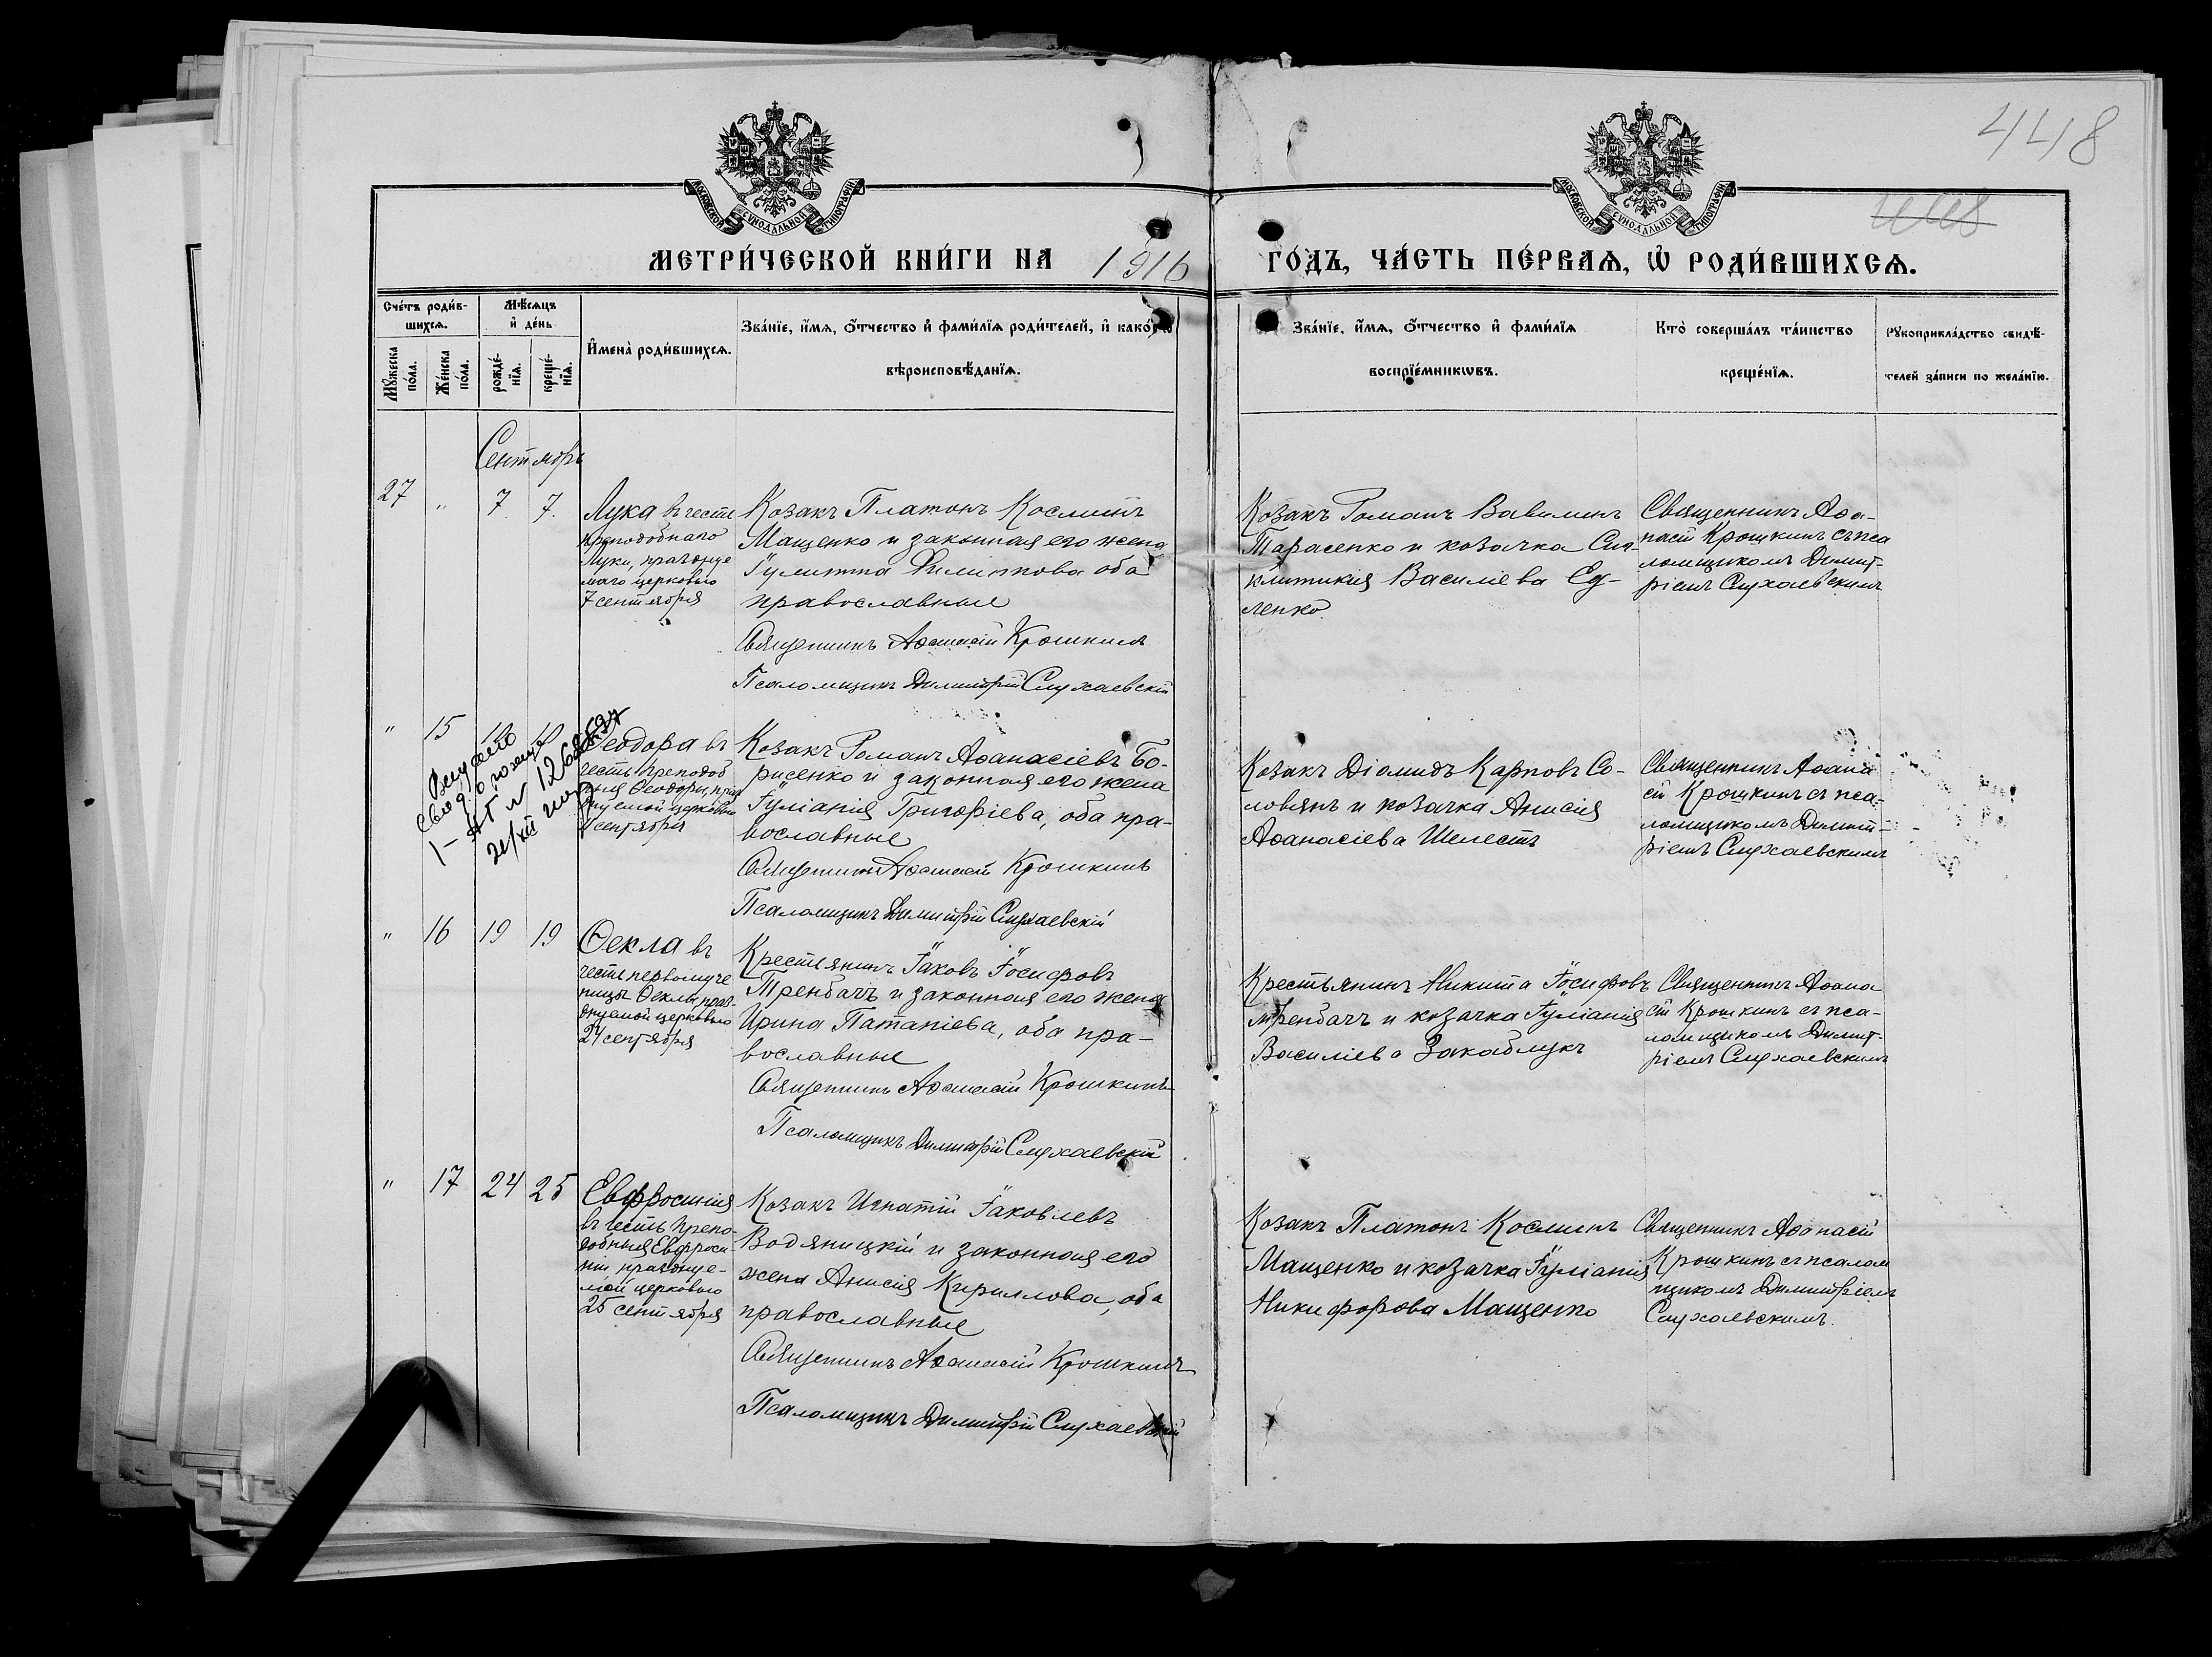 448
448
МОСКОВСКОЙ СУНОДАЛЬНОЙ ТИПОГРАФІИ
МОСКОВСКОЙ СУНОДАЛЬНОЙ ТИПОГРАФІИ
МЕТРИ́ЧЕСКОЙ КНИ́ГИ НА 1916 ГО́ДЪ, ЧА́СТЬ ПЕ́РВАѦ, Ѡ҆ РОДИ́ВШИХСѦ.
Сче́тъ роди́в-
шихсѧ.
Мꙋ́жеска
по́ла.
Же́нска
по́ла.
Мѣ́сѧцъ
и҆ де́нь
рожде́-
нїѧ.
креще́-
нїѧ.
И҆мена̀ роди́вшихсѧ.
Зва́нїе, и҆́мѧ, ѻ҆́тчество и҆ фами́лїѧ роди́телей, и҆ како́гѡ
вѣроисповѣ́данїѧ.
Зва́нїе, и҆́мѧ, ѻ҆́тчество и҆ фами́лїѧ
воспрїе́мникѡвъ.
Кто̀ соверша́лъ та́инство
креще́нїѧ.
Рꙋкоприкла́дство свидѣ́-
телей за́писи по жела́нїю.
Сентябрь
27 " 7. 7.
Лука въ честь
преподобнаго
Луки, празднуе
маго церковью
7 сентября
Козакъ Платонъ Косминъ
Мащенко и законная его жена
Іулитта Филиппова оба
православные
Священникъ Аѳанасій Крошкинъ
Псаломщикъ Димитрій Слухаевскій
Козакъ Романъ Вавилинъ
Тарасенко и козачка Син-
клитикия Василіева Ед-
ленко.
Священникъ Аѳа-
насій Крошкинъ съ пса
ломщикомъ Димит-
ріемъ Слухаевскимъ
" 15
свид. о рожде
1-
Ѳеодора въ
честь преподоб
ныя Ѳеодоры, праз
днуемой церковью
11 сентября
Козакъ Романъ Аѳанасіевъ Бо-
рисенко и законная его жена
Іуліанія Григоріева, оба пра-
вославные
Священникъ Аѳанасій Крошкинъ
Псаломщикъ Димитрій Слухаевскій
Козакъ Діомидъ Карповъ Со-
ловянъ и козачка Анисія
Аѳанасіева Шелестъ
Священникъ Аѳана
сій Крошкинъ съ пса-
ломщикомъ Димит-
ріемъ Слухаевскимъ
" 16 19 19
Ѳекла въ
честь первомуче
ницы Ѳеклы, праз-
днуемой церковью
24 сентября
Крестьянинъ Іаковъ Іосифовъ
Тренбачъ и законная его жена
Ирина Патапіева, оба пра-
вославные
Священникъ Аѳанасій Крошкинъ
Псаломщикъ Димитрій Слухаевскій
Крестьянинъ Никита Іосифовъ
Тренбачъ и козачка Іуліанія
Василіева Закаблукъ
Священникъ Аѳана
сій Крошкинъ съ пса-
ломщикомъ Димит-
ріемъ Слухаевскимъ
" 17 24 25
Евфросинія
въ честь препо-
добныя Евфроси-
ніи празднуе-
мой церковью
25 сентября
Козакъ Игнатій Іаковлевъ
Водяницкій и законная его
жена Анисія Кириллова, оба
православные
Священникъ Аѳанасій Крошкинъ
Псаломщикъ Димитрій Слухаевскій
Козакъ Платонъ Косминъ
Мащенко и козачка Іуліанія
Никифорова Мащенко
Священникъ Аѳанасій
Крошкинъ съ псалом
щикомъ Димитріемъ
Слухаевскимъ.